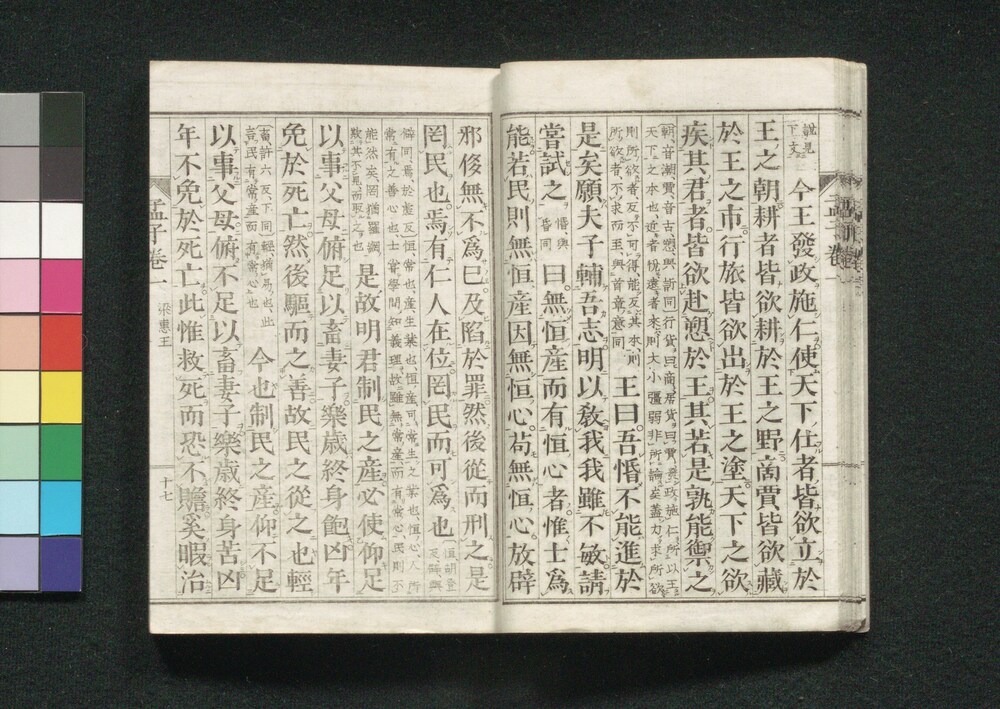 説見
下文
今王發政施仁使天下仕者皆欲立於
王之朝耕者皆欲耕於王之野商賈皆欲藏
於王之市行旅皆欲出於王之塗天下之欲
疾其君者皆欲赴愬於王其若是孰能禦之
朝音潮賈音古愬與訴同行貨曰商居貨曰賈發政施仁所以王
天下之本也近者悅遠者來則大小彊弱非所論矣蓋力求所欲
則所欲者反不可得能反其本則
所欲者不求而至與首章意同
王曰吾惛不能進於
是矣願夫子輔吾志明以敎我我雖不敏請
嘗試之
惛與
昏同
曰無恒産而有恒心者惟士爲
能若民則無恒産因無恒心苟無恒心放辟
邪侈無不爲已及陷於罪然後從而刑之是
罔民也焉有仁人在位罔民而可爲也
恒胡登
反辟與
僻同焉於虔反恒常也産生業也恒産可常生之業也恒心人所
常有之善心也士嘗學問知義理故雖無常産而有常心民則不
能然矣罔猶羅網
欺其不見而取之也
是故明君制民之産必使仰足
以事父母俯足以畜妻子樂歳終身飽凶年
免於死亡然後驅而之善故民之從之也輕
畜許六反下同輕猶易也此
言民有常産而有常心也
今也制民之産仰不足
以事父母俯不足以畜妻子樂歳終身苦凶
年不免於死亡此惟救死而恐不贍奚暇治
孟子卷一
梁惠王
十七